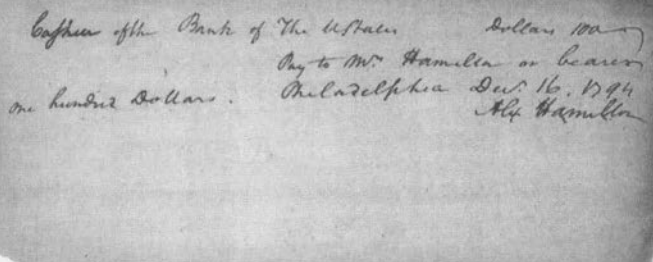 Cashier of the Bank of The UStates Dollars 100
Pay to Mrs Hamilton or bearer
one hundred Dollars. Philadelphia Decr. 16. 1794
Alex Hamilton